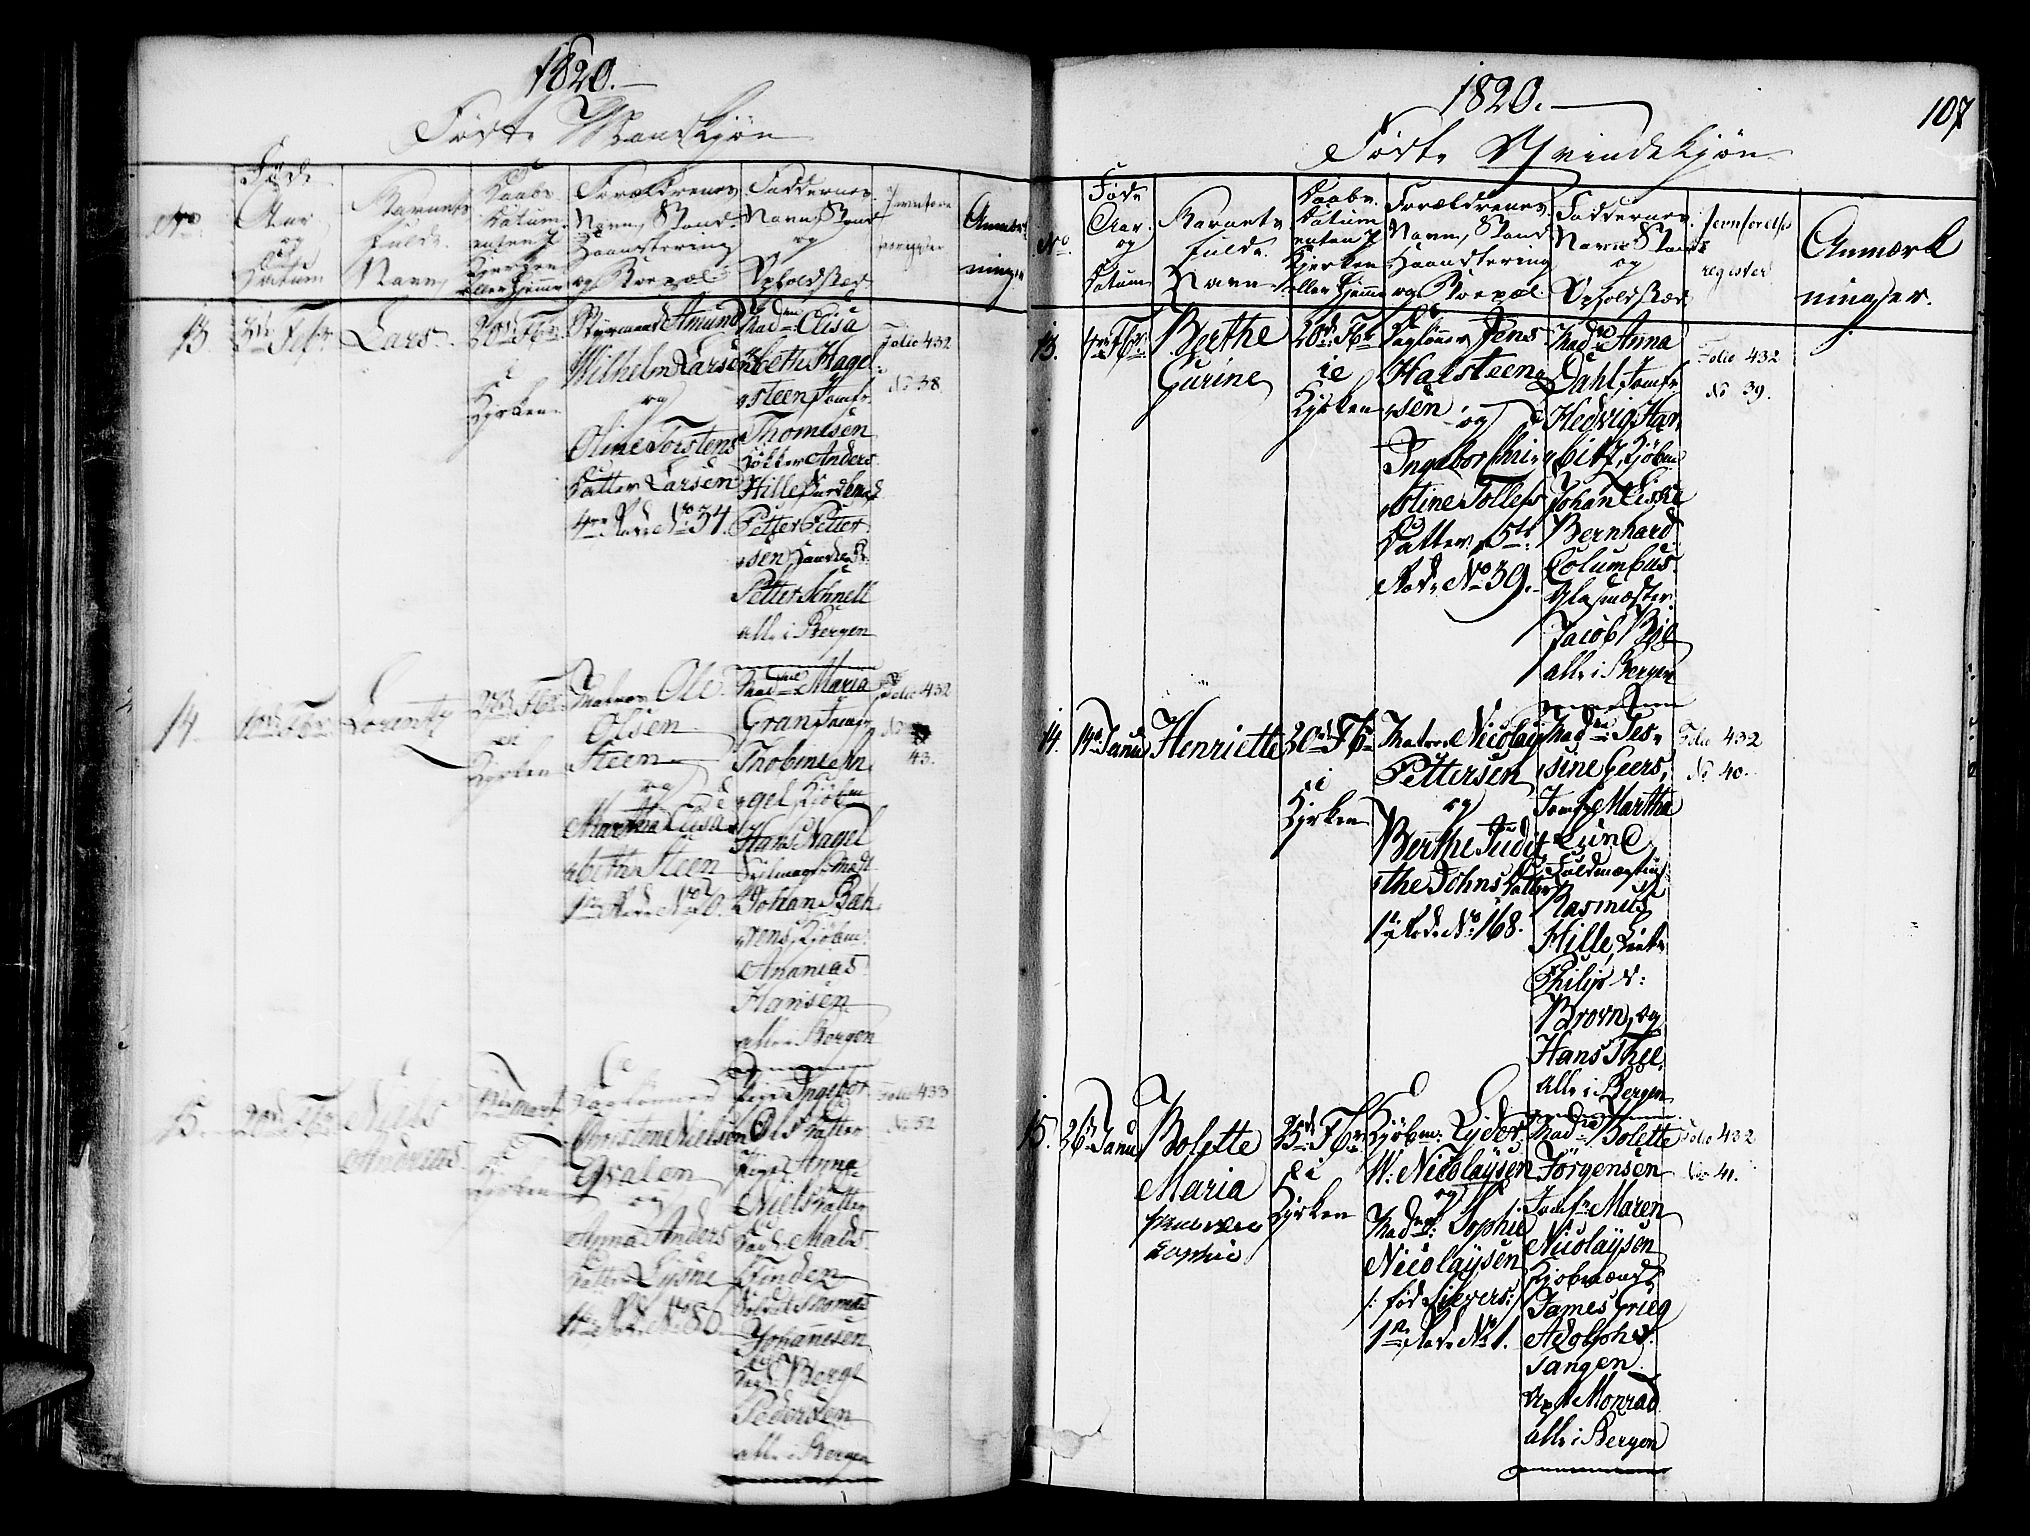 1820.
Fødte Mandkjøn
No.
Føde
Aar
og
Datum
Barnets
fulde
Navn,
Daabs
Datum
enten i
Kjerken
eller Hjemme
Forældrenes
Navn, Stand
Haandtering
og Boepæl
Faddernes
Navn, Stand
og
Opholdsted
Anmærk
ninger
13.
3die Febr
Lars
20de Fbr
i
Kjrken
Amund
Wilhelm Larsen
og
Oline Torstens
Datter Larsen
4de Rode No 34.
Madme Elisa
beth Hagel
steen, Jomfr
Thomesen
Anders
Hille
Petter Petter
sen
Petter Schnell
alle i Bergen
Folio 432
No 38
14.
10de Fbr
Lorentz
27de Fbr
i
Kjrken
Matros Ole
Olsen
Steen
og
Martha Elisa
beth Steen
1te Rode No 70.
Madme Maria
Gran
Kjøbm
Hans Nagel
Johan Beh
rens, Kjøbm:
Ananias
Hansen
alle i Bergen
Folio 432
No
43.
15.
20de Fbr
Niels
Andreas
i
Kjrken
Christen Nielsen
Qvalen
og
Anna Anders
Datter Lysne
1te Rode No 80
Pige Ingebor
Ols Datter
Pige Anna
Niels Datter
Mads
Finden
Johannesen
Berge
Pedersen
alle i Bergen
Folio 433
No 52
1820.
107
Fødte Qvindekjøn
No
Føde
Aar
og
Datum
Barnets
fulde
Navn
Daabs
Datum
enten i
Kjerken
eller Hjemme
Forældrenes
Navn, Stand
Haandtering
og Boepæl
Faddernes
Navn Stand
og
Opholdsted
Jevnførelses
register
Anmærk
ninger.
13.
4de Fbr
Berthe
Gurine
20de Fbr
i
Kjrken
Dagløner Jens
Halsteen
sen
og
Ingebor Chri
stine Tollefs
Datter, 5te
Rode No 39.
Madme Anna
Dahl, Jomfr
Hedvig Har
bitz, Kjøbm
Johan Fiske
Bernhard
Columbus
Glasmæster
Jacob Bøe
alle i Bergen
Folio 432
No 39.
14.
14de Janu
Henriette
20de Fbr
i
Kjrken
Matros Nicolay
Pettersen
og
Berthe Judi
the Johns Datter
1te Rode No 168.
Madme Jes
sine Geers,
Jomfr Martha
Lund
Fuldmægtig
Rasmus
Hille,
Philip d:
Brovn, og
Hans Thee
alle i Bergen
Folio 432
No 40.
15.
26de Janu
Bolette
Maria
Sophie
25de Fbr
i
Kjrken
Kjøbm: Lyder
W. Nicolaysen
og
Madme Sophie
Nicolaysen
/: fød Sievers :/
1te Rode No 1.
Madme Bolette
Jørgensen
Jomfr Maren
Nicolaysen
Kjøbmænd
James Grieg
Adolph d:
Tangen
og Monrad
alle i Bergen
Folio 432
No 41.